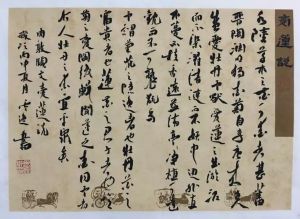 愛蓮說
水陸草木之花可愛者甚蕃
晉陶淵明獨愛菊自李唐來世人
甚愛牡丹予獨愛蓮之出淤泥
而不染濯清漣而不妖中通外直
不蔓不枝香遠益清亭亭淨植可
觀而不可褻玩焉
予謂菊花之隱逸者也牡丹花之
富貴者也蓮花之君子者也噫
菊之愛陶後鮮有聞蓮之愛同予者
何人牡丹之愛宜乎眾矣
周敦頤 愛蓮說
丙申夏月 書